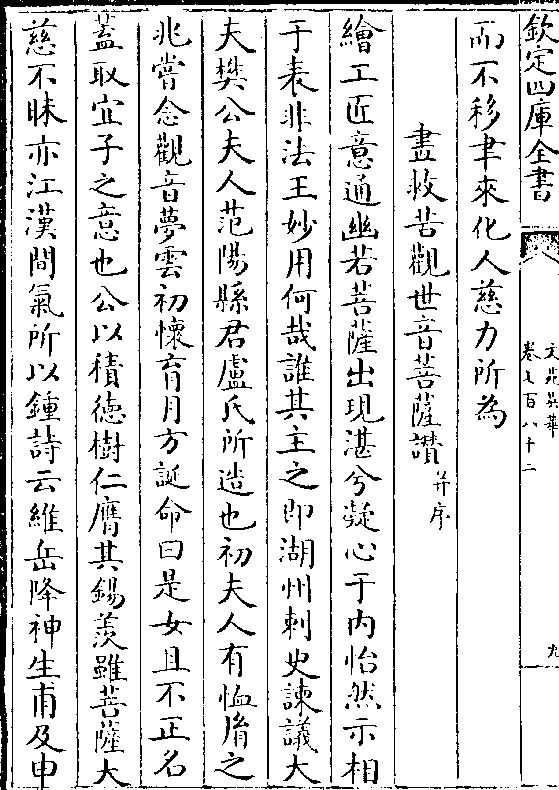 欽定四庫全書
文苑英華
卷七百八十二
九
而不移聿來化人慈力所為
畫救苦觀世音菩薩讃并序
繪工匠意通幽若菩薩出現湛兮凝心于内怡然示相
于表非法王妙用何哉誰其主之即湖州刺史諫議大
夫樊公夫人范陽縣君盧氏所造也初夫人有恤脣之
兆嘗念觀音夢雲初懷育月方誕命曰是女且不正名
葢取宜子之意也公以積德樹仁膺其錫羨雖菩薩大
慈不昧亦江漢間氣所以鍾詩云維岳降神生甫及申